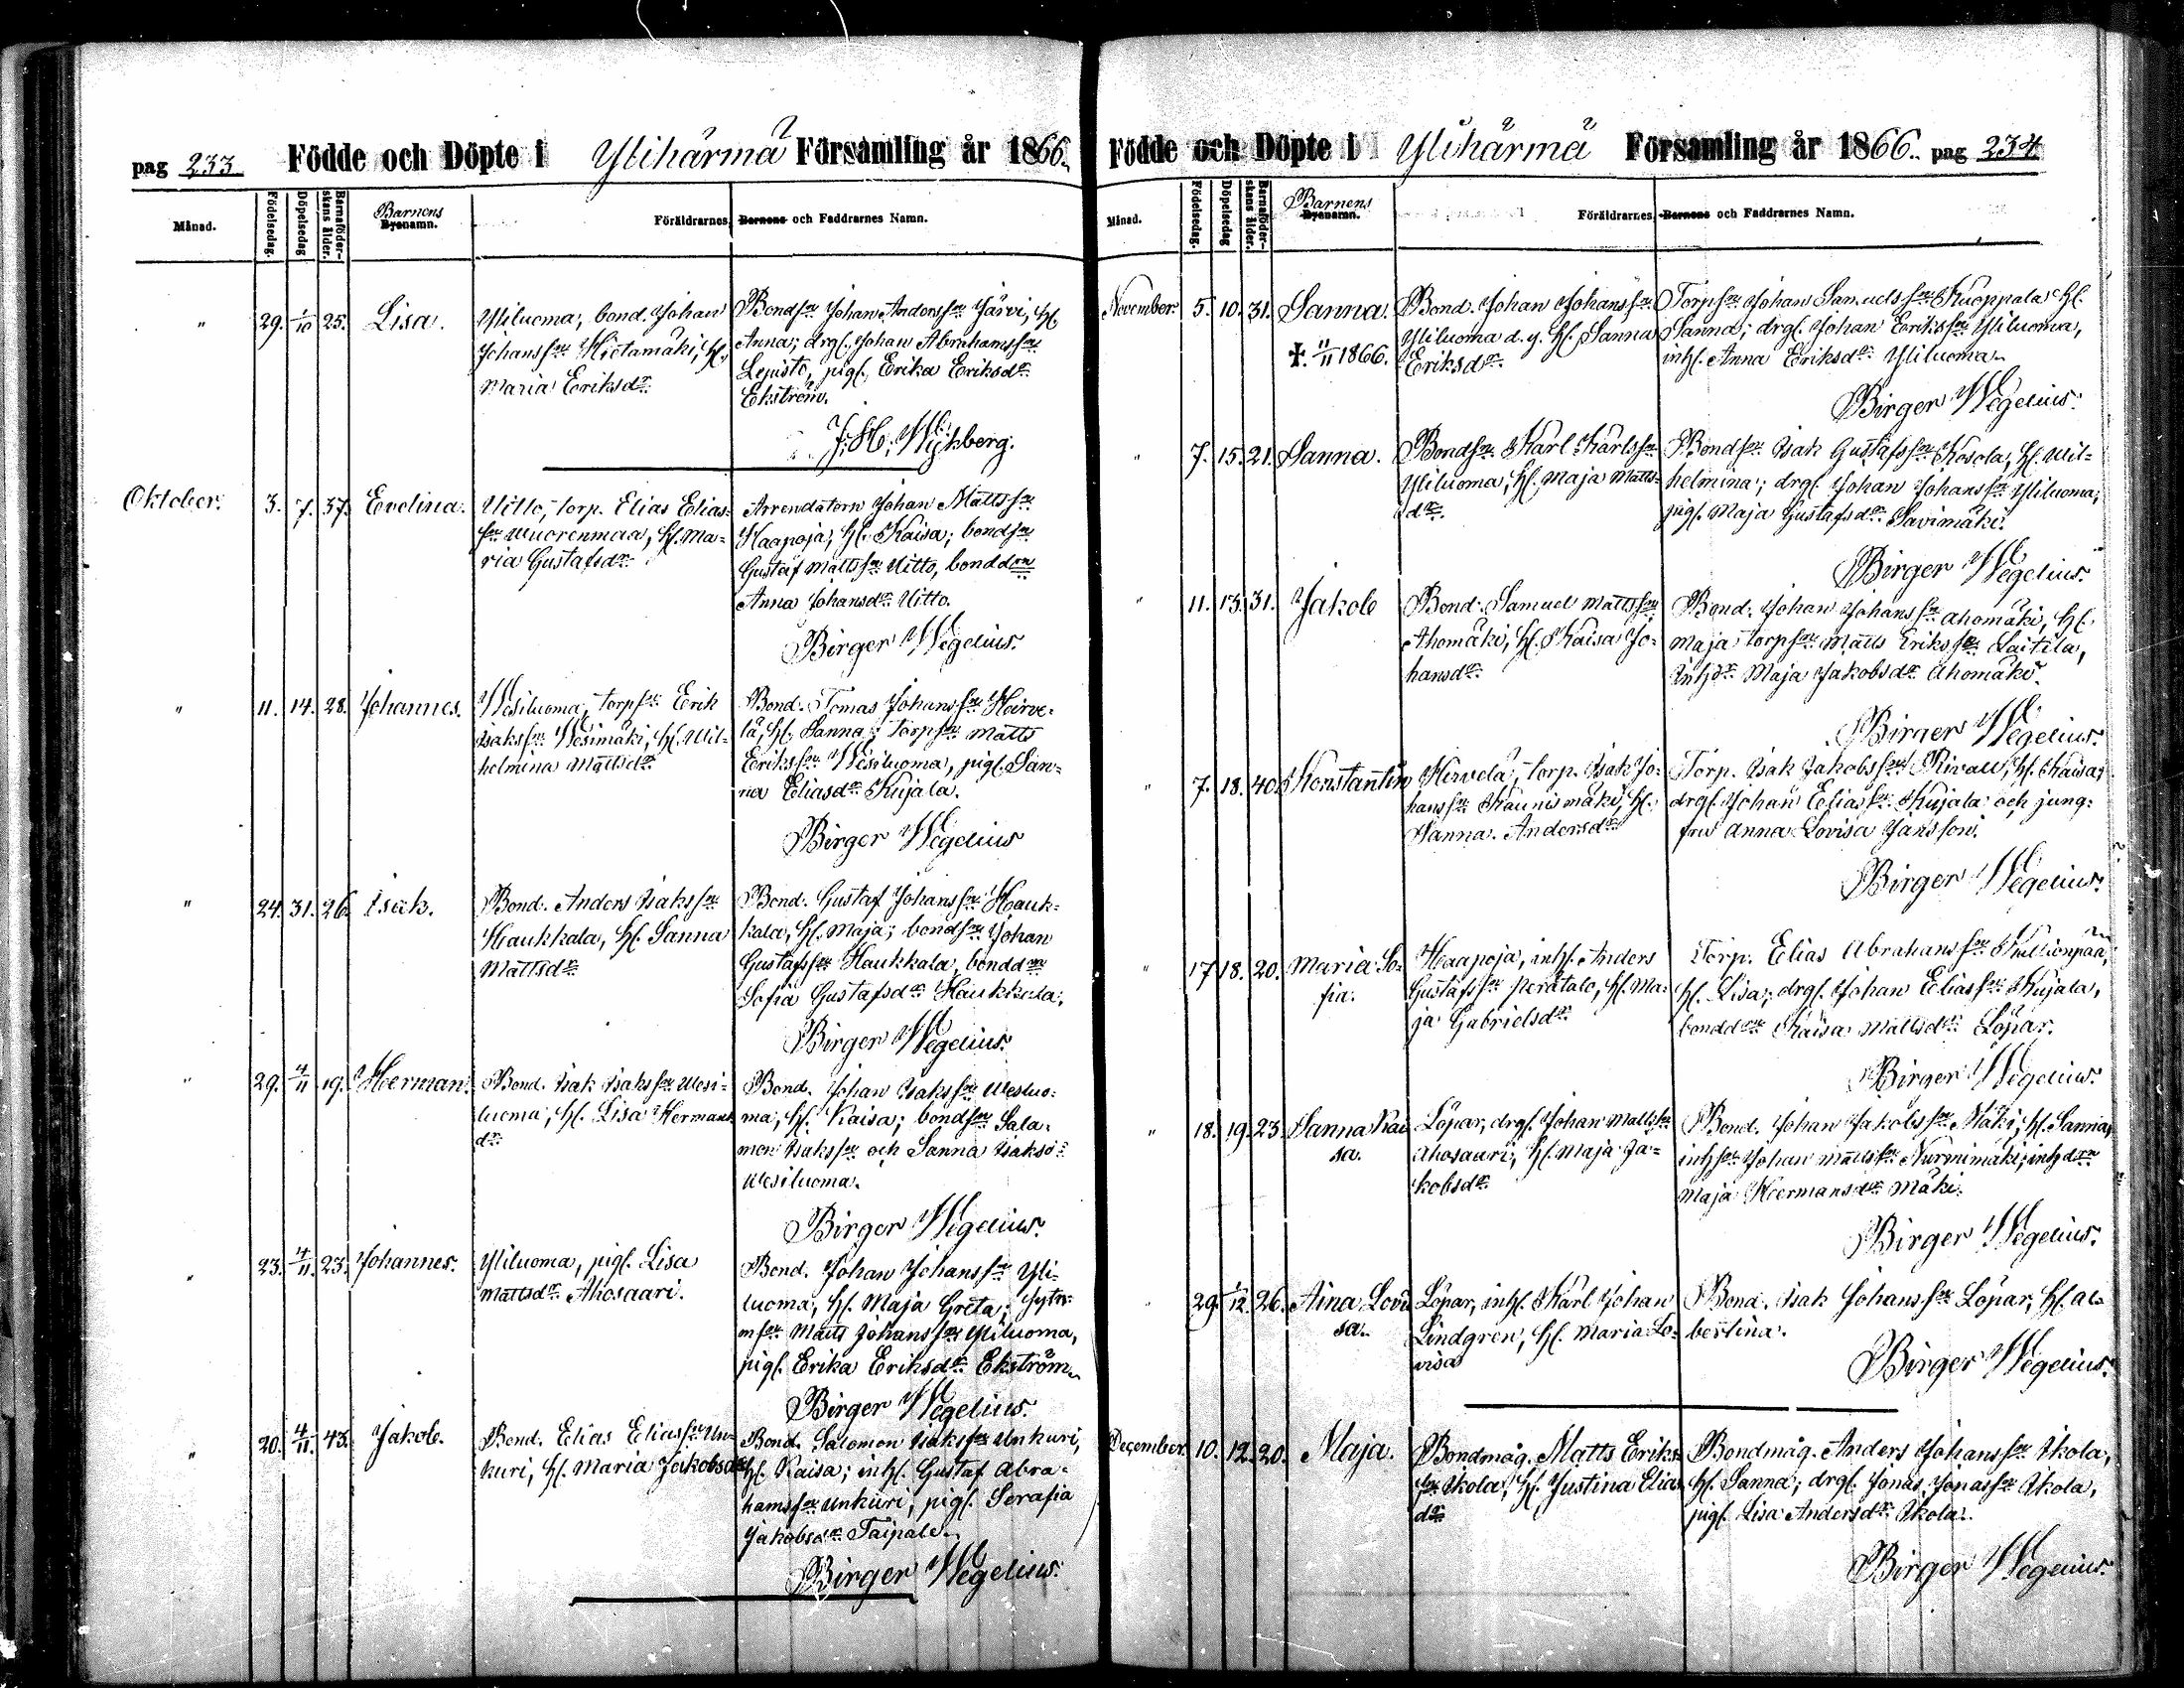 pag 233 Födde och Döpte i Ylihärmä Församling år 1866.
Månad. Födelsedag. Döpelsedag Barnaföderskans ålder. Barnens Bysnamn. Föräldrarnes, Barnens och Faddrarnes Namn.
" 29. 1/10 25. Lisa. Yliluoma, bond. Johan
Johansson Hietamäki, h.
Maria Eriksdr
Bondson Johan Andersson Järvi, h.
Anna; drg. Johan Abrahamsson
Lepistö, pig. Erika Eriksdr
Ekström.
Oktober. 3. 7. 37. Evelina. Uitto, torp. Elias Elias-
son Wuorenmaa, h. Ma-
ria Gustafsdr
Arrendatorn Johan Mattsson
Haapoja, h. Kaisa; bondson
Gustaf Mattsson Uitto, bonddrn
Anna Johansdr Uitto.
Birger Wegelius.
" 11. 14. 28. Johannes. Wesiluoma, torpson Erik
Isaksson Wesimäki, h. Wil-
helmina Mattsdr
Bond. Tomas Johansson Hirve-
lä, h. Sanna; torpson Matts
Eriksson Wesiluoma, pig. San-
na Eliasdr Kujala.
Birger Wegelius
" 24. 31. 26. Isak. Bond. Anders Isaksson
Haukkala, h. Sanna
Mattsdr
Bond. Gustaf Johansson Hauk-
kala, h. Maja; bondson Johan
Gustafsson Haukkala, bonddrn
Sofia Gustafsdr Haukkala.
Birger Wegelius.
" 29. 4/11 19. Herman. Bond. Isak Isaksson Wesi-
luoma, h. Lisa Hermans
dr
Bond. Johan Isaksson Wesluo-
ma, h. Kaisa; bondson Salo-
mon Isaksson och Sanna Isaksdr
Wesiluoma.
Birger Wegelius.
" 23. 4/11. 23. Johannes. Yliluoma, pig. Lisa
Mattsdr Ahosaari.
Bond. Johan Johansson Yli-
luoma, h. Maja Greta;
Matts Johansson Yliluoma,
pig. Erika Eriksdr Ekström.
Birger Wegelius.
" 20. 4/11. 43. Jakob. Bond. Elias Eliasson Un-
kuri, h. Maria Jakobsdr
Bond. Salomon Isaksson Unkuri,
h. Kaisa; inh. Gustaf Abra-
hamsson Unkuri, pig. Serafia
Jakobsdr Taipale.
Birger Wegelius.
Födde och Döpte i Ylihärmä Församling år 1866. pag 234
Månad. Födelsedag. Döpelsedag Barnaföderskans ålder. Barnens Bysnamn. Föräldrarnes, Barnens och Faddrarnes Namn.
November. 5. 10. 31. Sanna.
✝ 11/11 1866.
Bond. Johan Johansson
Yliluoma d.y. h. Sanna
Eriksdr
Torpson Johan Samuelsson Kuoppala h.
Sanna; drg. Johan Eriksson Yliluoma,
inh. Anna Eriksdr Yliluoma.
Birger Wegelius.
" 7. 15. 21. Sanna. Bondson Karl Karlsson
Yliluoma, h. Maja Matts-
dr
Bondson Isak Gustafsson Kosola, h. Wil-
helmina; drg. Johan Johansson Yliluoma,
pig. Maja Gustafsdr Savimäki.
Birger Wegelius.
" 11. 13. 31. Jakob Bond. Samuel Mattsson
Ahomäki, h. Kaisa Jo-
hansdr
Bond. Johan Johansson Ahomäki, h.
Maja torpson Matts Eriksson Laitila,
Inhdr Maja Jakobsdr Ahomäki.
Birger Wegelius.
" 7. 18. 40. Konstantin Hirvelä, torp. Isak Jo-
hansson Kaunismäki, h.
Sanna Andersdr
Torp. Isak Jakobsson h. Kaisa;
drg. Johan Eliasson Kujala och jung-
fru Anna Lovisa Jansson.
Birger Wegelius.
" 17 18. 20. Maria So-
fia.
Haapoja, inh. Anders
Gustafsson Perätalo, h. Ma-
ja Gabrielsdr
Torp. Elias Abrahamsson
h. Lisa; drg. Johan Eliasson Kujala,
bonddrn Kaisa Mattsdr Löpar.
Birger Wegelius.
" 18. 19. 23. Sanna Kai
sa.
Löpar, drg. Johan Mattsson
Ahosaari, h. Maja Ja-
kobsdr
Bond. Johan Jakobsson Mäki, h. Sanna,
inhson Johan Mattsson Nurmimäki; inhdrn
Maja Hermansdr Mäki.
Birger Wegelius.
" 29. 1/12. 26. Aina Lovi
sa.
Löpar, inh. Karl Johan
Lindgren, h. Maria Lo-
visa
Bond. Isak Johansson Löpar, h. Al-
bertina.
Birger Wegelius.
December. 10. 12. 20. Maja. Bondmåg. Matts Eriks-
son Ikola, h. Justina Elias
dr
Bondmåg. Anders Johansson Ikola,
h. Sanna; drg. Jonas Jonasson Ikola,
pig. Lisa Andersdr Ikola.
Birger Wegelius.